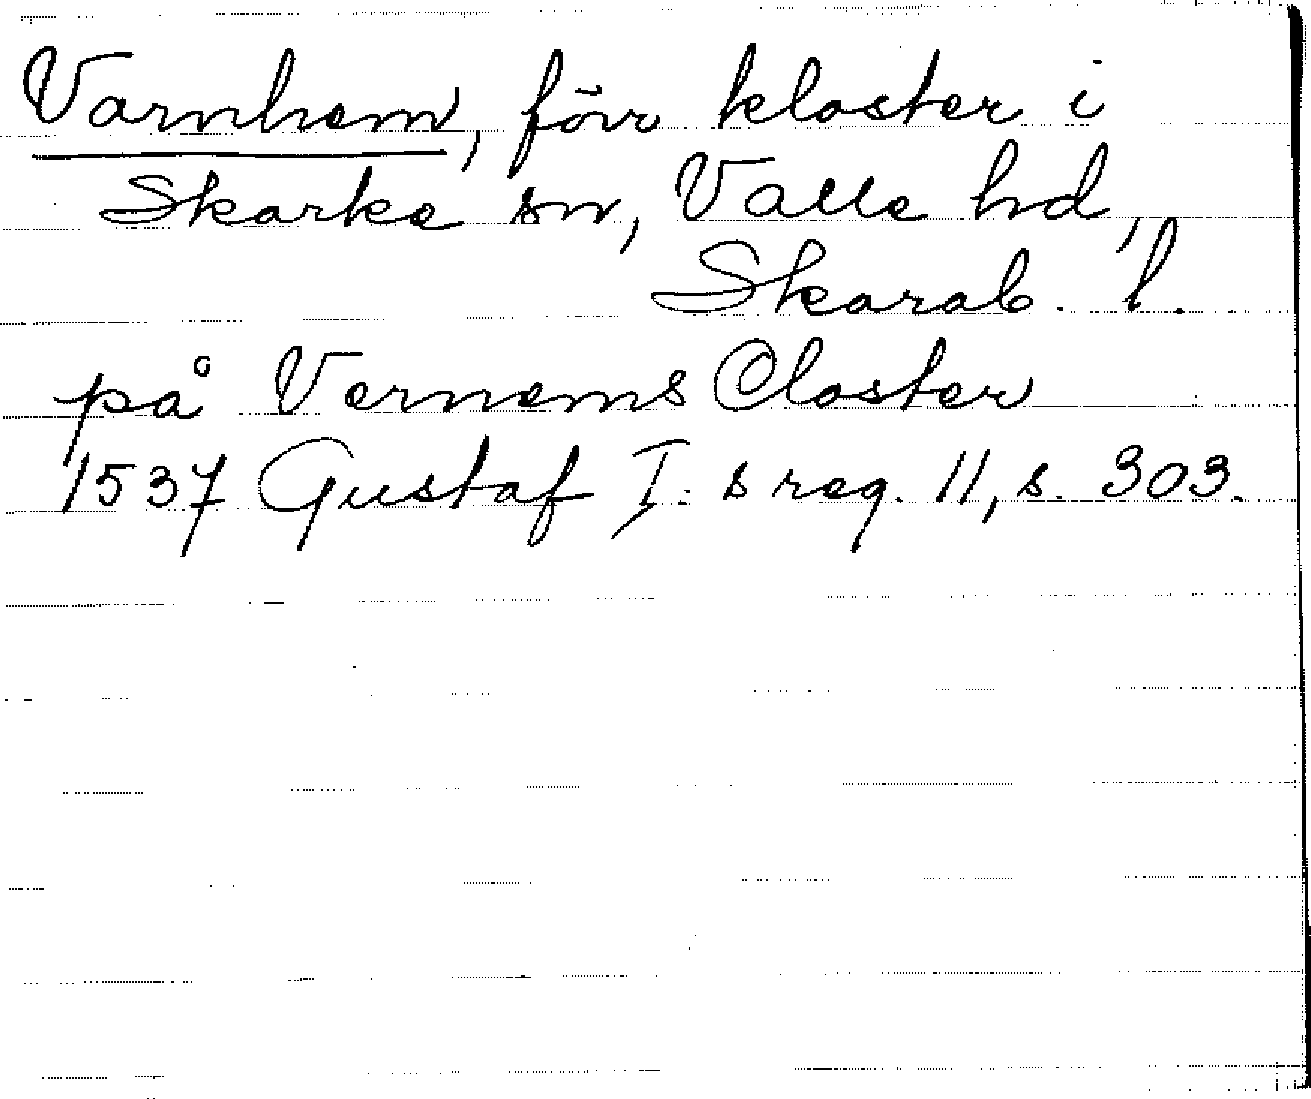 Varnhem, förr kloster i
Skarke sn, Valle hd,
Skarab. l.
på Vernems Closter
1537 Gustaf I:s reg. 11, s. 303.